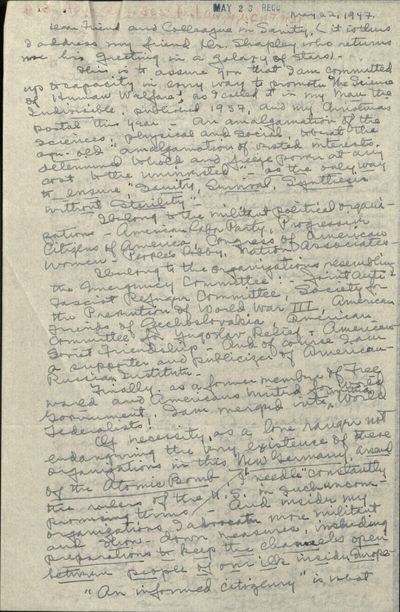 MAY 23 REC'D
May 22, 1947.
Dear Friend and Colleague in Sanity, (it is thus
I address my friend Dr. Shapley who returns
me his greeting in a galaxy of stars).
This is to assure you that I am committed
up to capacity in every way to promote the Science
of Human Welfare, as I called it in my
Indivisible, 1937, and my Christmas
postal this year - An amalgamation of the
Sciences, physical and social, to beat the
age-old "amalgamation of vested interests
determined to hold and freeze power at any
cost to the uninvested" - as the only way
to ensure "Sanity, Survival, Synthesis
without Sterility".
I belong to the militant political organi-
zations - American Labor Party, Progressive
Citizens of America, Congress of American
Women - People's Lobby, National Associates -
I belong to the organizations resembling
the Emergency Committee: - Joint Anti-
Fascist Refugee Committee, Society for
the Prevention of World War III - American
Friends of Czechoslovakia, American
Committee for Yugoslav Relief, American
Soviet Friendship - And of course I am
a supporter and publicizer of American-
Russian Institute -
Finally, as a former member of Free
World and Americans United for World
Government, I am merged into World
Federalists!
Of necessity, as a lone ranger not
endangering the very existence of these
organizations in this New Germany, award
of the Atomic Bomb I "needle" constantly
the rulers of the U.S. in such uncom-
promising terms - And inside my
organizations, I advocate more militant
and down measures, including
preparations to keep the channels open
between people of our ilk inside Europe -
"An informed citizenry" is what